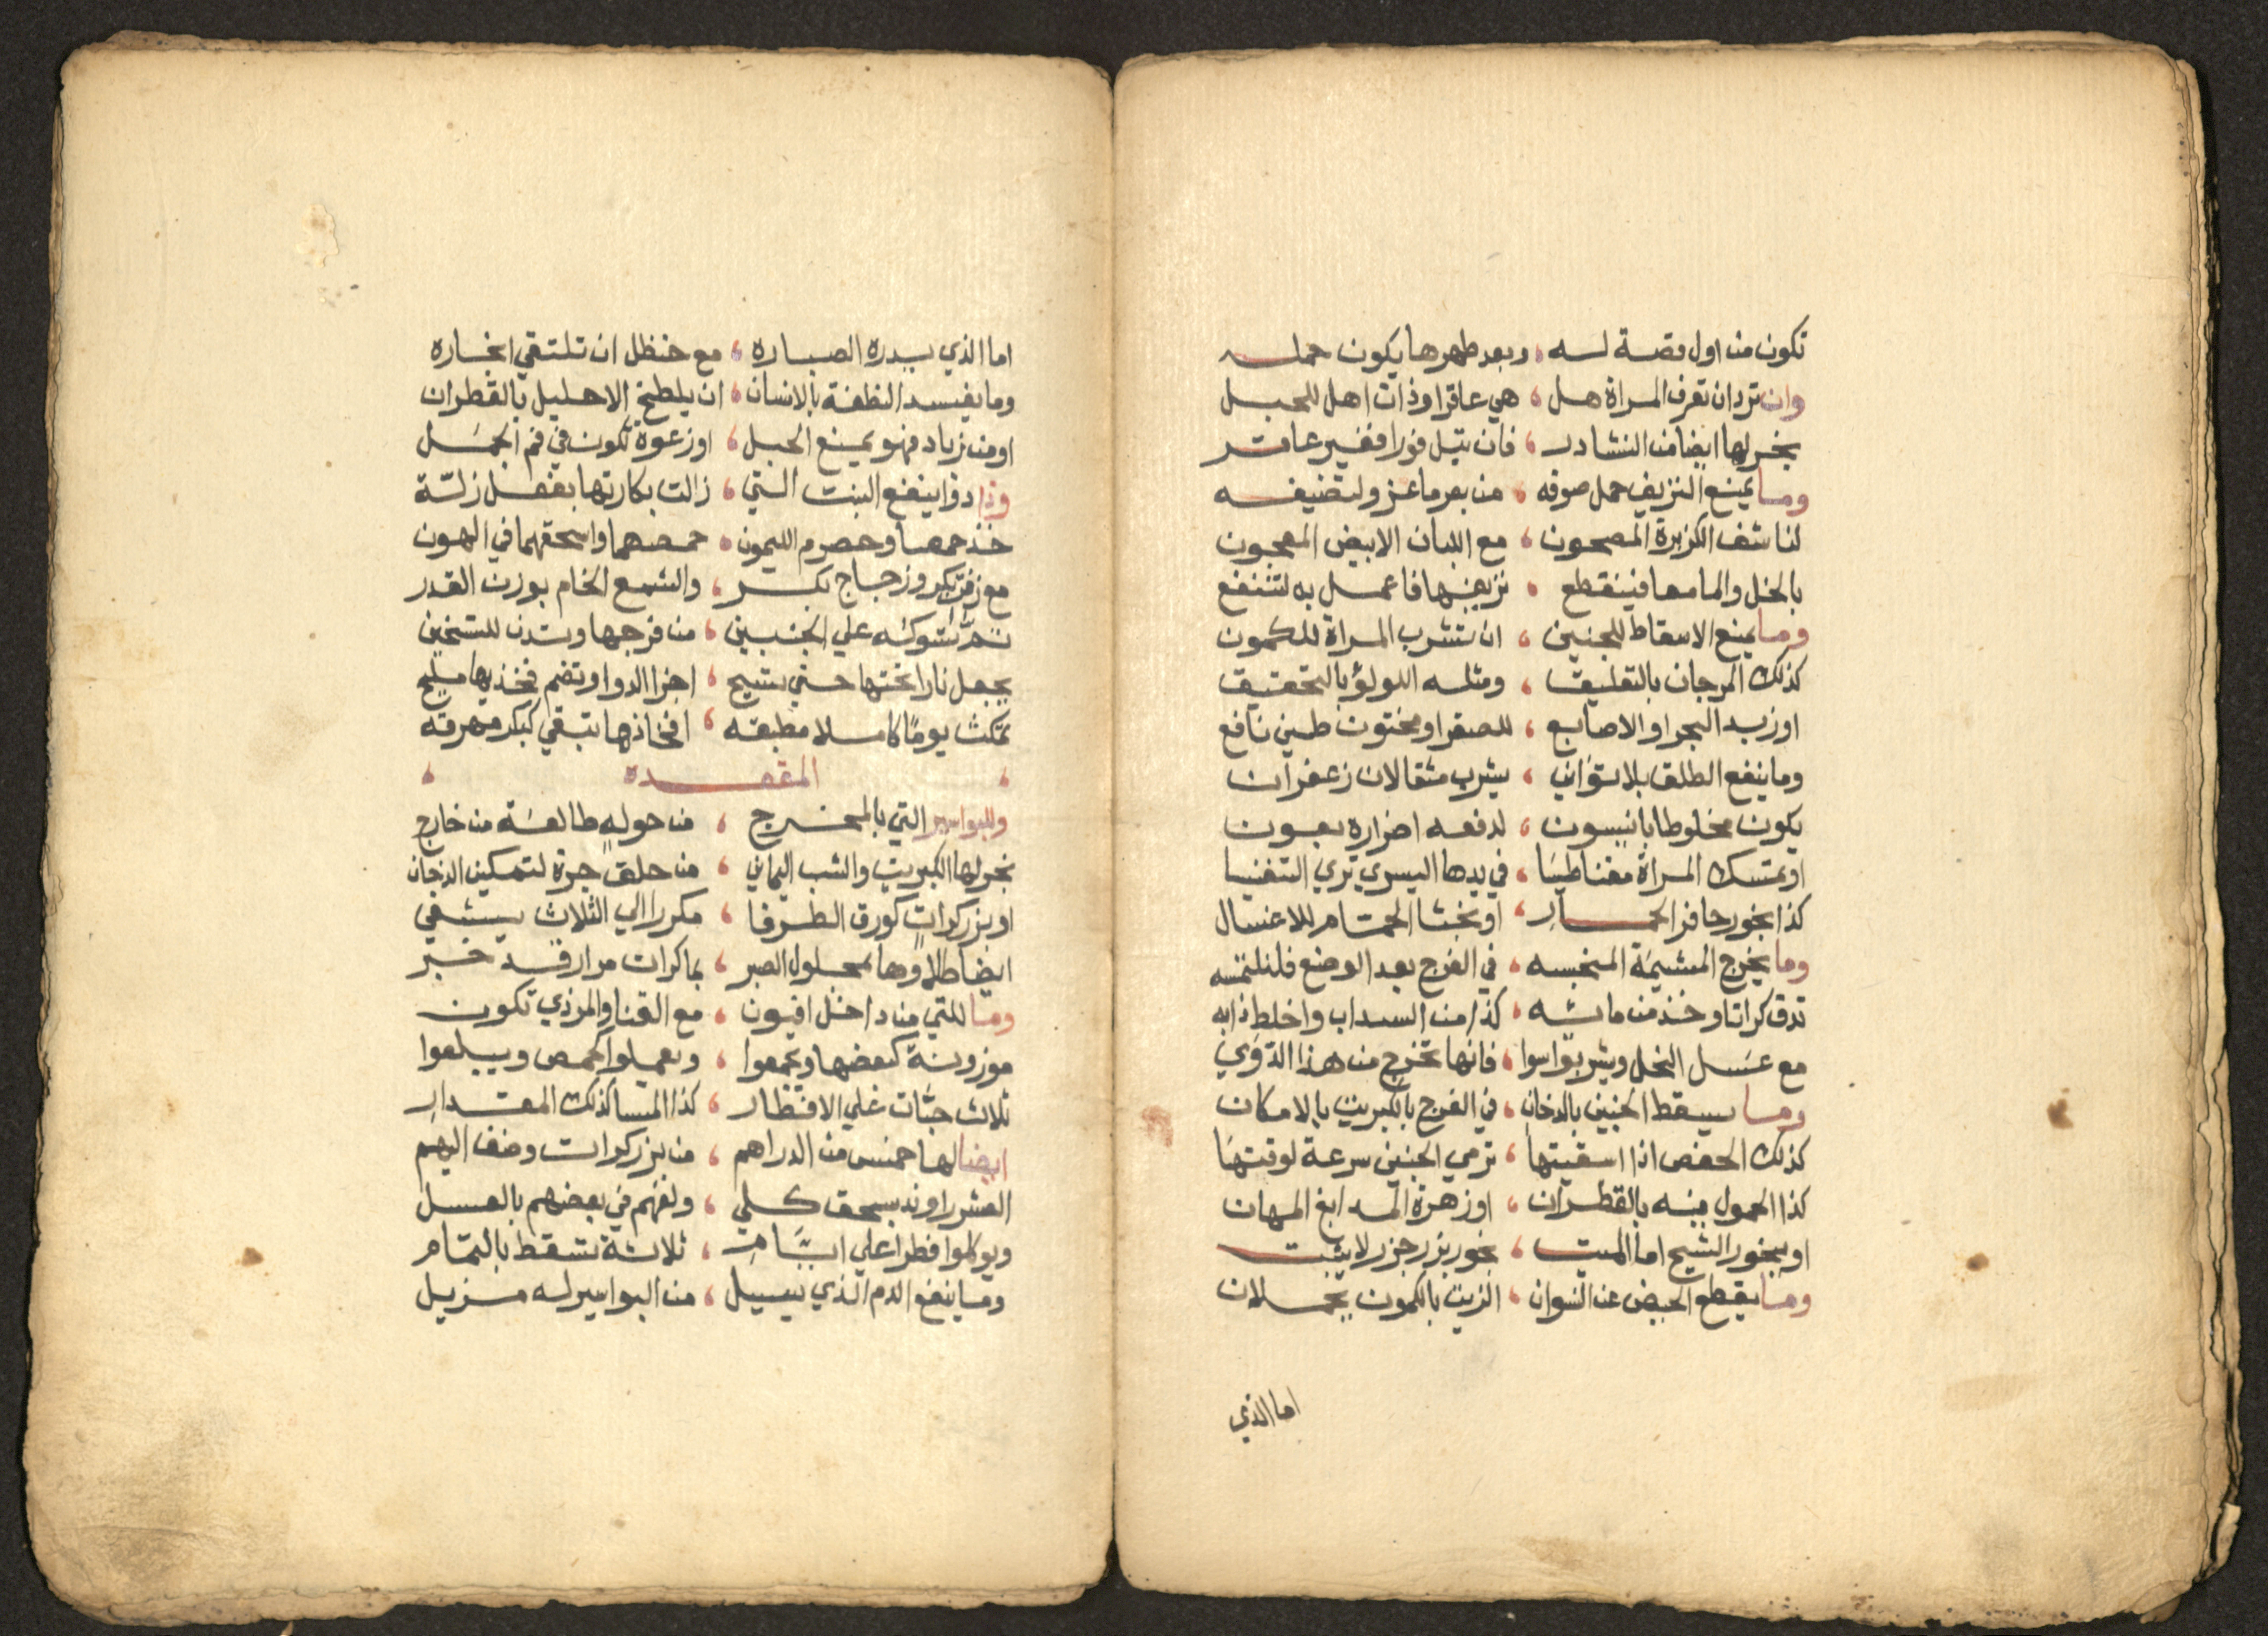 تكون من اول وصة له ، وبعد طهرها يكون حمله
وان ترد ان تعرف المراة هل ، هي عاقرا وذات اهل للحبل
بخر لها ايضا من النشادر ، فان تبل فورا فغير عاقر
وما يمنع النزيف حمل صوفه ، من بعر ماعز ولتضيفه
لناشف الكزبرة المصحون ، مع اللبان الابيض المعجون
بالخل والما معا فينقطع ، نزيفها فاعمل به لتنتفع
وما يمنع الاسقاط للجنين ، ان تشرب المراة للكمون
كذلك المرجان بالتعليق ، ومثله اللولؤ بالتحقيق
او زبد البحر او الاصابع ، للصفر او مختون طين نافع
وما ينفع الطلق بلا تواني ، يشرب مثقالان زعفران
يكون مخلوطا بانيسون ، لدفعه اضراره بعون
او تمتسك المراة مغناطيسا ، في يدها اليسري تري التنفيسا
كذا بخور حافر الحمار ، او بخثا الحمام للاغتسال
وما يخرج المشيمة المنحبسه ، في الفرج بعد الوضع فلنلتمسه
تدق كراتا وخذ من مائه ، كذا من السداب واخلط ذا به
مع عسل النخل ويشربوا سوا ، فانها تخرج من هذا الدوي
وما يسقط الجنين بالدخان ، في الفرج بالكبريت بالامكان
كذلك الحفص اذا اسقيتها ، ترمي الجنين سرعة لوقتها
كذا الحمول منه بالقطران ، او زهرة المدابغ المهان
او ببخور الشيح اما الميت ، بخور بزر جزر لا يثبت
وما يقطع الحيض عن النسوان ، الزيت بالكمون يحملان
اما الذي
اما الذي يدره الصباره ، مع حنظل ان تلتقي اخباره
وما يفسد النطفة بالانسان ، ان يلطخ الاحليل بالقطران
او من زباد فهو يمنع الحبل ، او زعوة تكون في فم الجمل
وذا دوا ينفع البنت التي ، زالت بكارتها بفعل زلة
خذ حمصا وحصرم الليمون ، حمصهما واسحقهما في الهون
مع زفت بكر وزجاج بكر ، والشمع الخام بوزن القدر
ثم توكه علي الجنبين ، من فرجها وتدن للتسخين
يجعل نارا تحتها حتي يسيح ، اجزا الدوا وتضم فخذيها مليح
تمكث يوما كاملا مطبقه ، افخاذها تبقي كبكر مهرقه
، المقعده ،
وللبواسير التي بالمخرج ، من حوله طالعة من خارج
بخر لها الكبريت والشب اليماني ، من حلق جرة لتمكين الدخان
او بزر كرات كورق الطرفا ، مكررا الي الثلاث يشفي
ايضا طلاوها بمحلول الصبر ، بما كرات مرار قد خبر
وما للتي من داخل افيون ، مع القنا والمرذي تكون
موزونة كبعضها وتجمعوا ، وتعملوا كحمص ويبلعوا
ثلاث حبات علي الافطار ، كذا المسا كذلك المقدار
ايضا لها خمس من الدراهم ، من بزر كرات وضف اليهم
العشر راوند بسحق كلي ، ولفهم في بعضهم بالعسل
ويوكلوا فطرا علي ايام ، ثلاثة تسقط بالتمام
وما ينفع الدم الذي يسيل ، من البواسير له مزيل